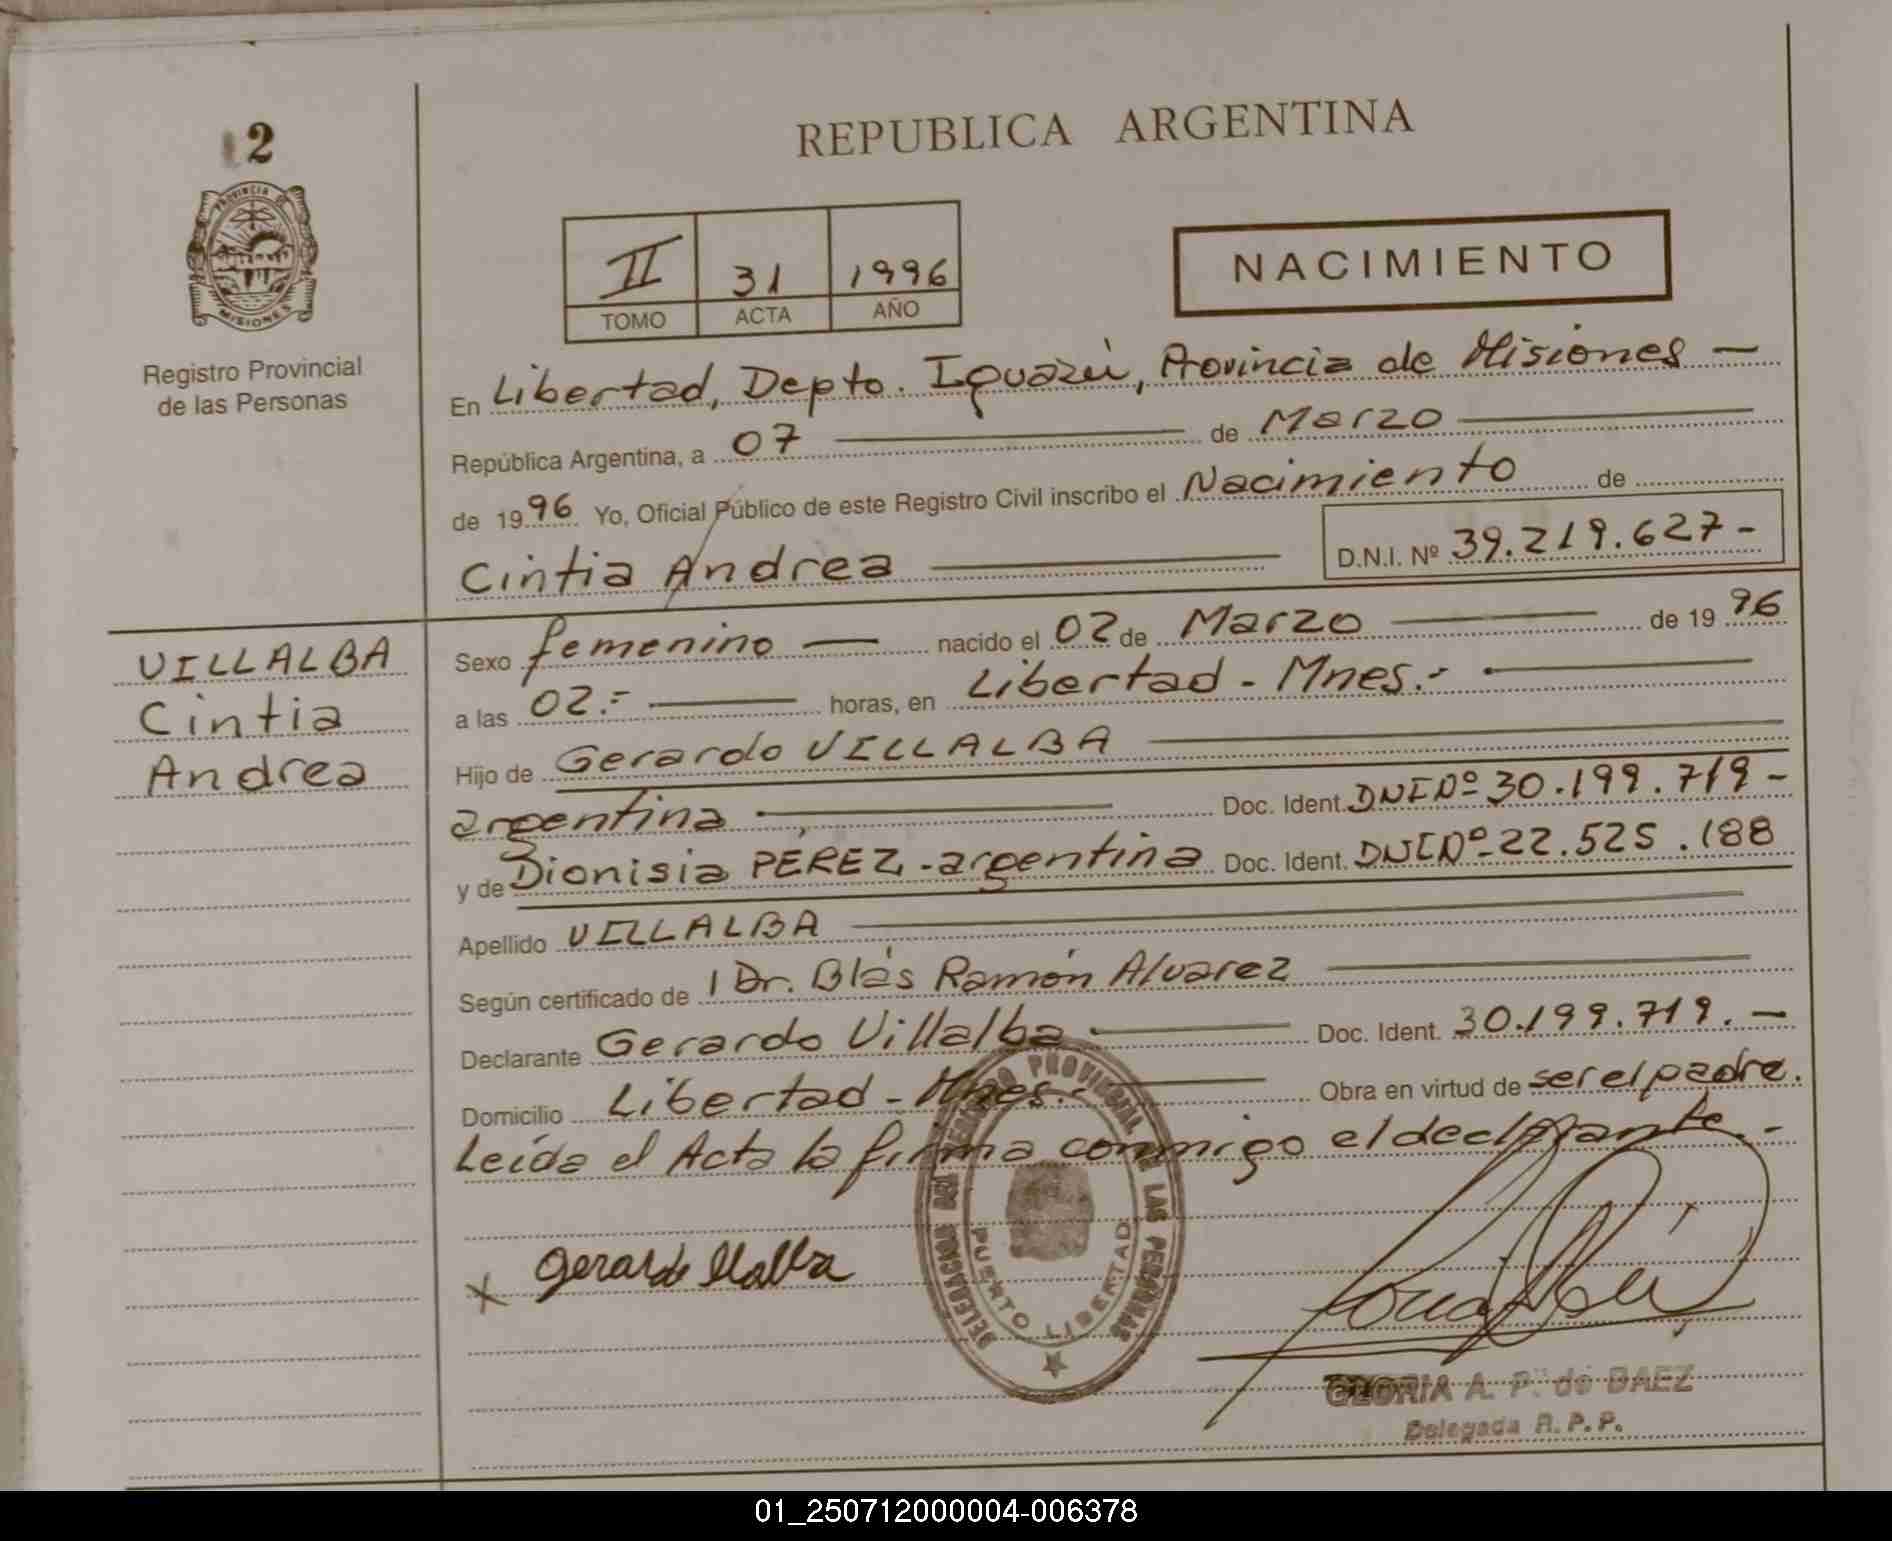 2
PROVINCIA DE
MISIONES
Registro Provincial
de las Personas
REPUBLICA ARGENTINA
II 31 1996
TOMO ACTA AÑO
NACIMIENTO
En Libertad, Depto. Iguazú, Provincia de Misiones —
República Argentina, a 07 — de Marzo —
de 1996 Yo, Oficial Público de este Registro Civil inscribo el Nacimiento de
Cintia Andrea — D.N.I. Nº 39.219.627-
VILLALBA
Cintia
Andrea
Sexo femenino — nacido el 02 de Marzo — de 1996
a las 02.- — horas, en Libertad - Mnes.- —
Hijo de Gerardo VILLALBA —
argentina — Doc. Ident. DNI Nº 30.199.719-
y de Dionisia PEREZ - argentina Doc. Ident. DNI Nº 22.525.188
Apellido VILLALBA —
Según certificado de 1 Dr. Blás Ramón Alvarez —
Declarante Gerardo Villalba — Doc. Ident. 30.199.719.-
Domicilio Libertad - Mnes.- — Obra en virtud de ser el padre.
Leída el Acta la firma conmigo el declarante.-
DELEGACION DEL REGISTRO PROVINCIAL DE LAS PERSONAS
PUERTO LIBERTAD
x Gerardo
GLORIA A. P. de BAEZ
Delegada R.P.P.
01_250712000004-006378